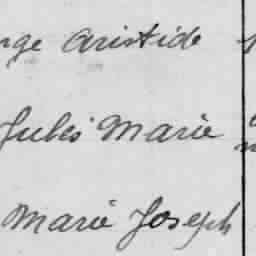 Aristide
Jules Marie
Marie Joseph